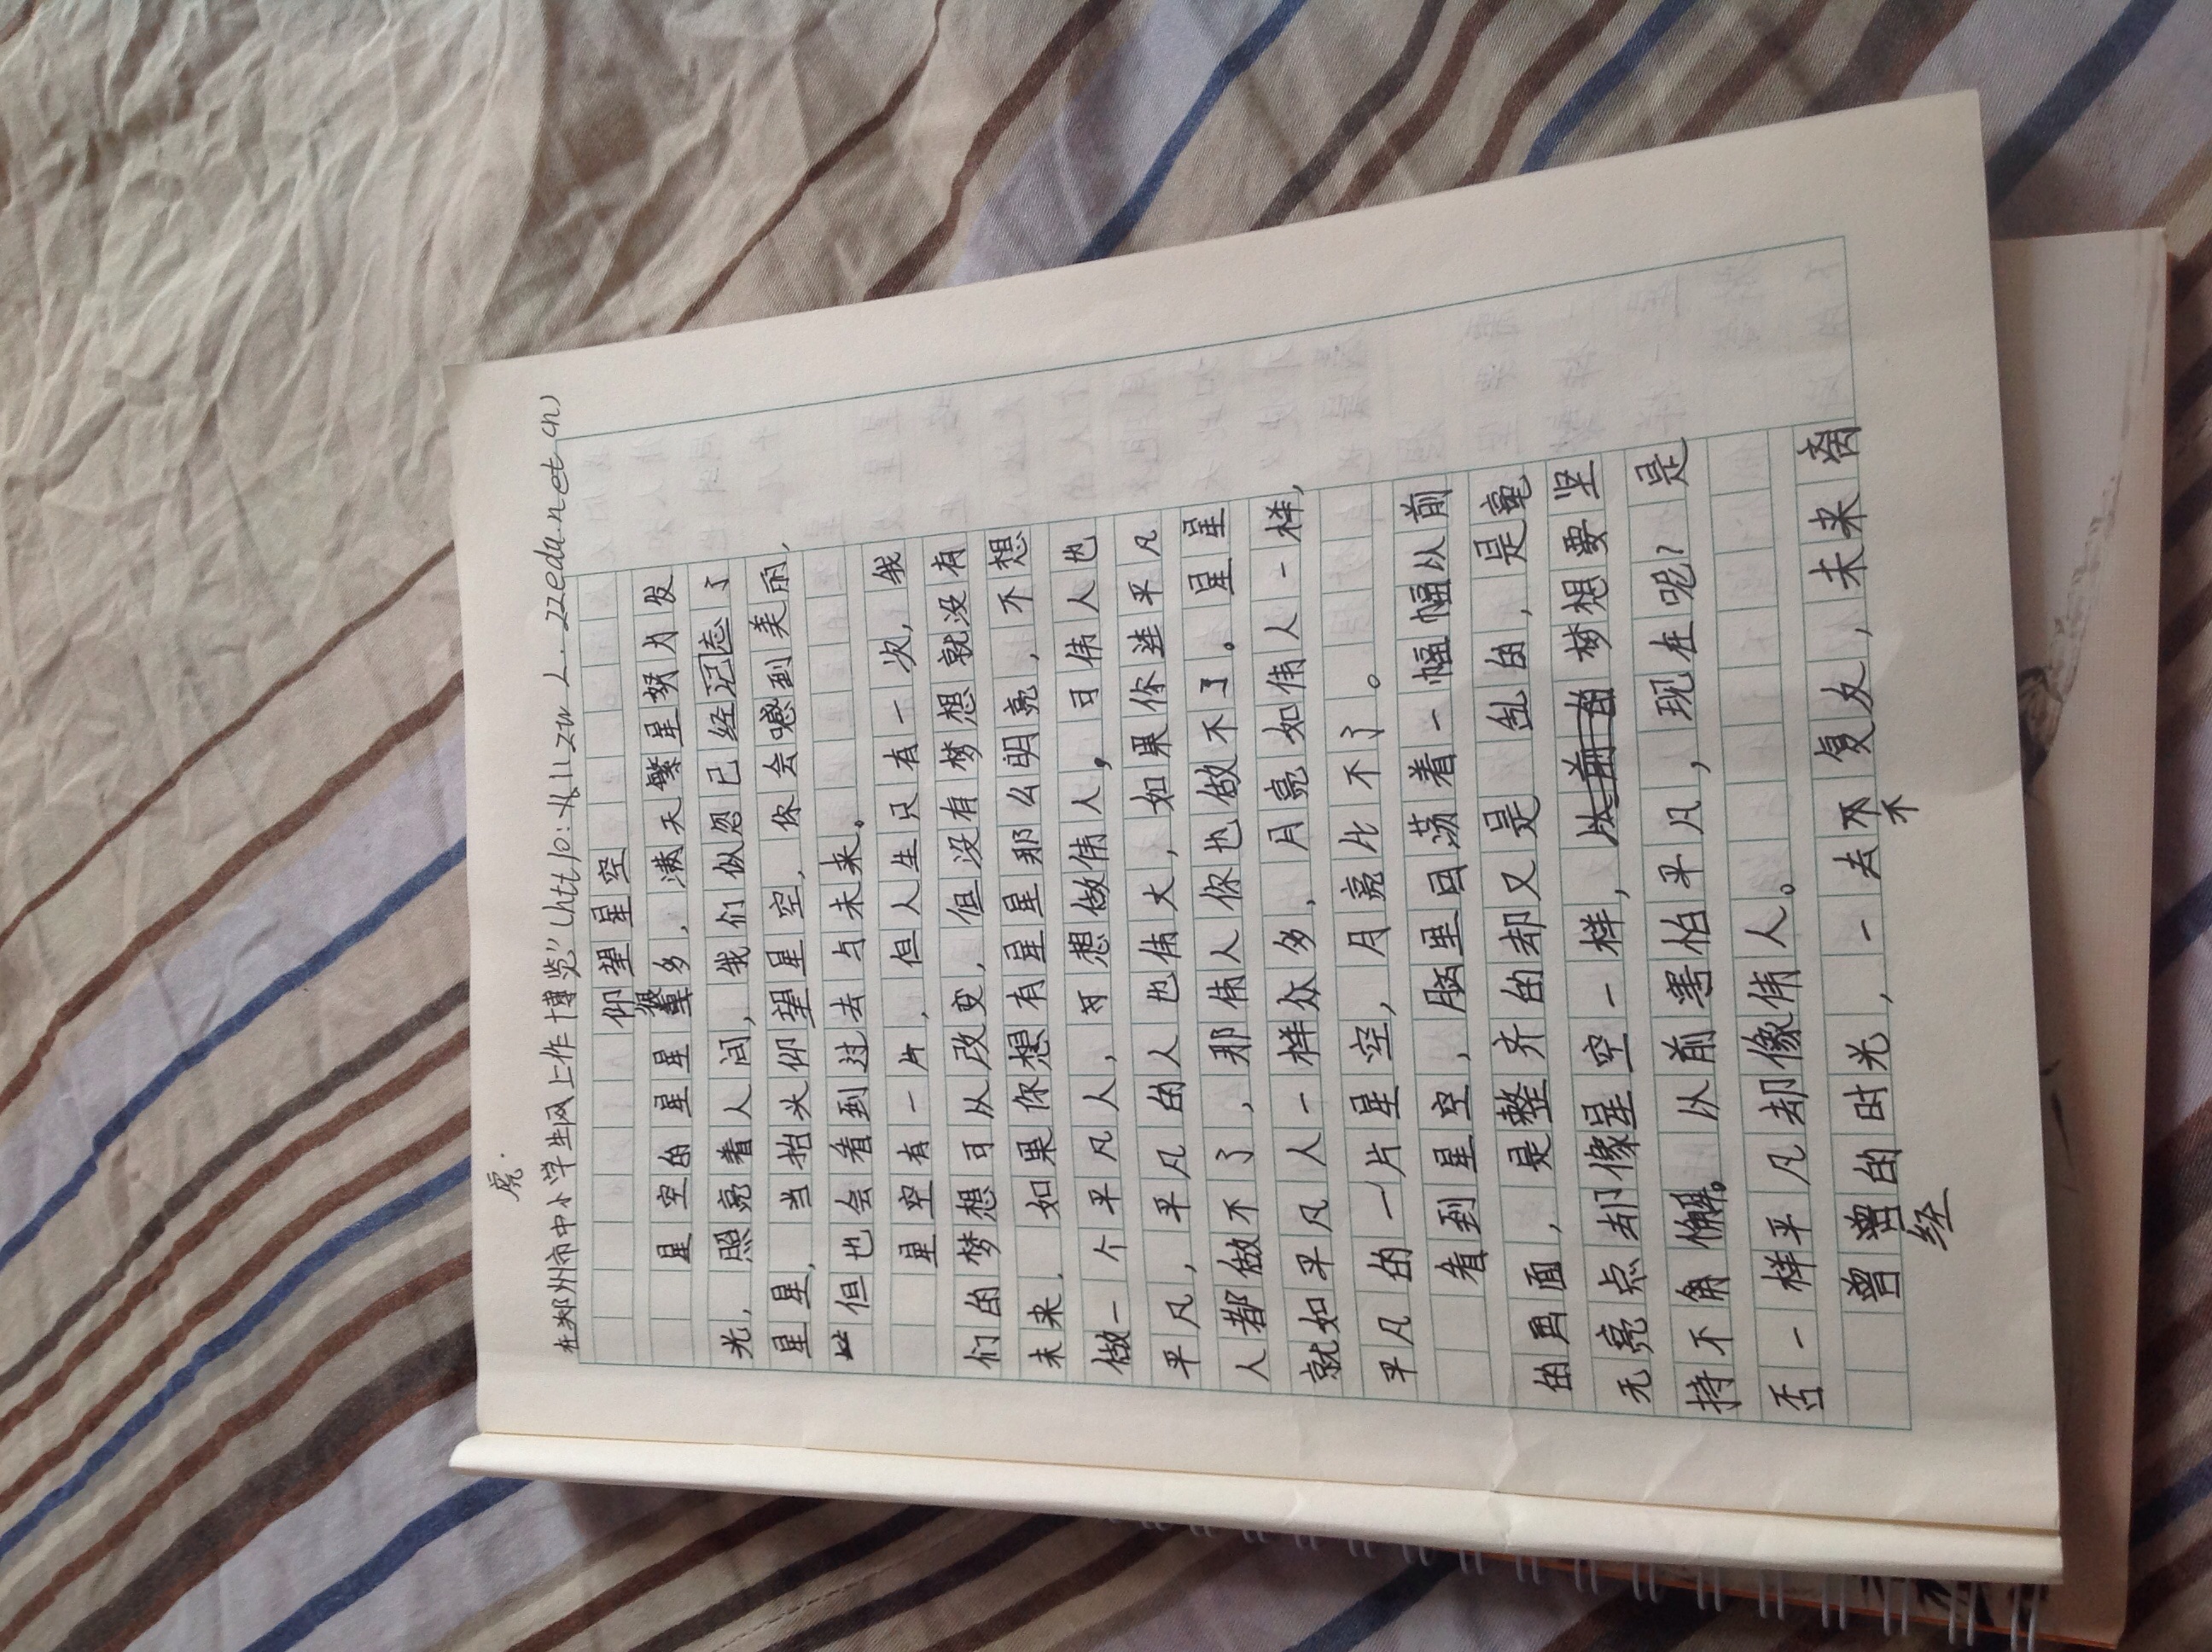 在郑州市中小学生网上作博览"(http://zw.zzedu.net.cn)
仰望星空
星空的星星繁多，满天繁星努力发
光，照亮着人间，我们似忽已经忘了
星星，当抬头仰望星空，你会感到美丽，
但也会看到过去与未来。
星空有一片，但人生只有一次，我
们的梦想可从改变，但没有梦想就没有
未来，如果你想有星星那么明亮，不想
做一个平凡人，想做伟人，可伟人也
平凡，平凡的人也伟大，如果你连平凡
人都做不了，那伟人你也做不了。星星
就如平凡人一样众多，月亮如伟人一样，
平凡的一片星空，月亮比不了。
看到星空，脑里回荡着一幅幅以前
的画面，是整齐的却又是乱的，是毫
无亮点却像星空一样，梦想要坚
持不角懈。以前害怕平凡，现在呢？是
否一样平凡却像伟人。
曾经的时光，一去不复反，未来